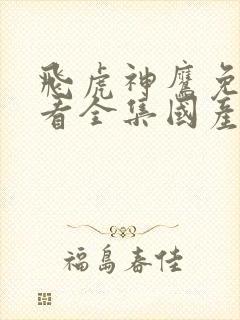 飛虎神鷹免
看全集國產
福島春佳